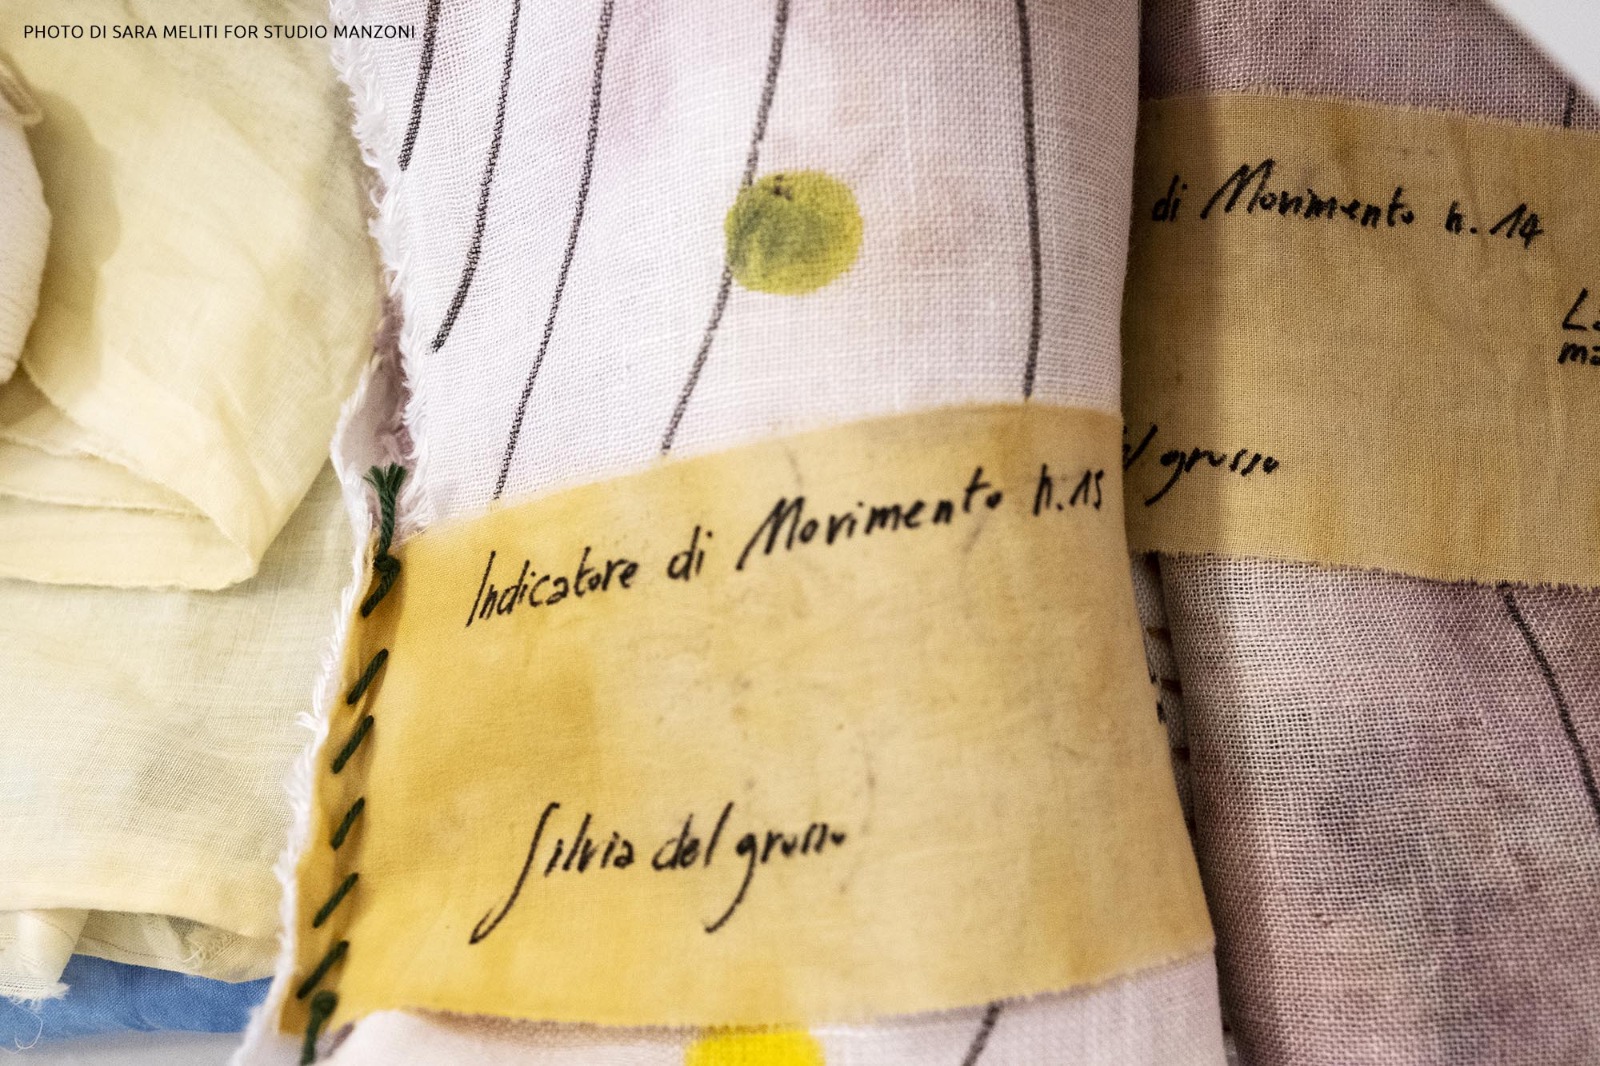 PHOTO DI SARA MELITI FOR STUDIO MANZONI
di Movimento n. 14
grosso
Indicatore di Movimento n. 15
Silvia del grosso